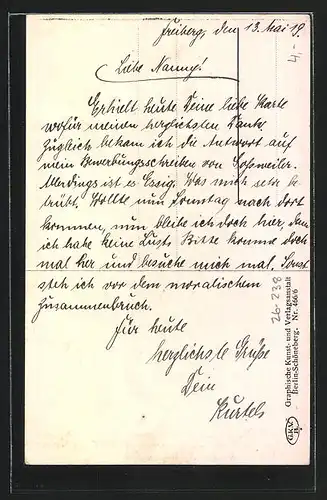 Freiberg, den 13. Mai 19.
Liebe Nanny!
Erhielt heute Deine liebe Karte
wofür meinen herzlichsten Dank.
Zugleich bekam ich die Antwort auf
mein Bewerbungsschreiben von
Allerdings ist es Essig. Was mich sehr be-
trübt. Wollte nun Sonntag nach dort
kommen, nun bleibe ich doch hier, denn
ich habe keine Lust. Bitte komme doch
mal her und besuche mich mal. Sonst
steh ich vor dem moralischem
Zusammenbruch.
Für heute
herzlichste Grüße
Dein
Kurtels
4,-
26-238
Graphische Kunst- und Verlagsanstalt
Berlin-Schöneberg. Nr. 466/6